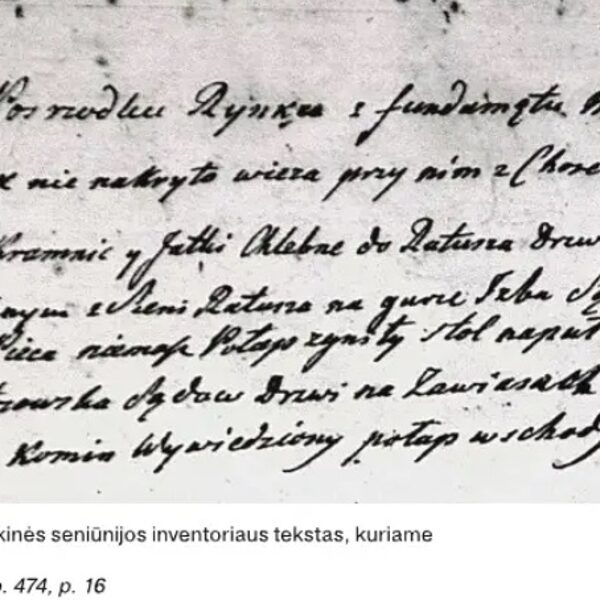 Posrzodku Rynku z fundamętu
nie nakryto wieza przy nim z Chore
Kramnic y Jatki Chlebne do Ratusza Drzw
z Sieni Ratusza na gurze Izba Są
Pieca niemasz Potap zynsty stol napuł
Sądow Drzwi na Zawiasach
Komin Wywiedziony potap wschody
kinės seniūnijos inventoriaus tekstas, kuriame
474, p. 16